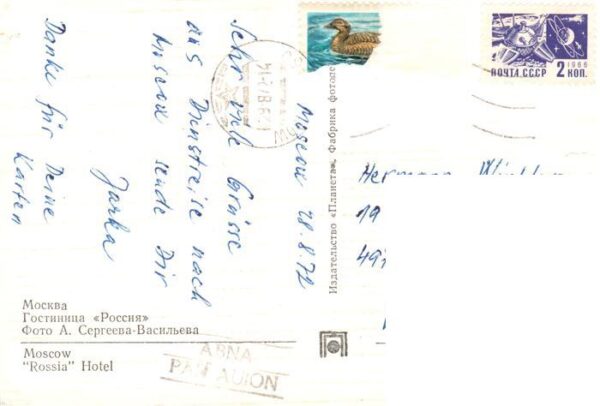 Moscow 28.8.72
Sehr viele Grüsse
aus Dienstreise nach
Moscow sende Dir
Jarka
Danke für Deine
Karten
Москва
Гостиница «Россия»
Фото А. Сергеева-Васильева
Moscow
"Rossia" Hotel
АВИА
PAR AVION
Издательство «Планета». Фабрика
1966
ПОЧТА СССР 2 КОП.
Hermann
19